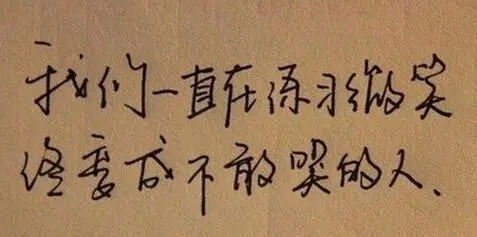 我们一直在练习微笑
终变成不敢哭的人.